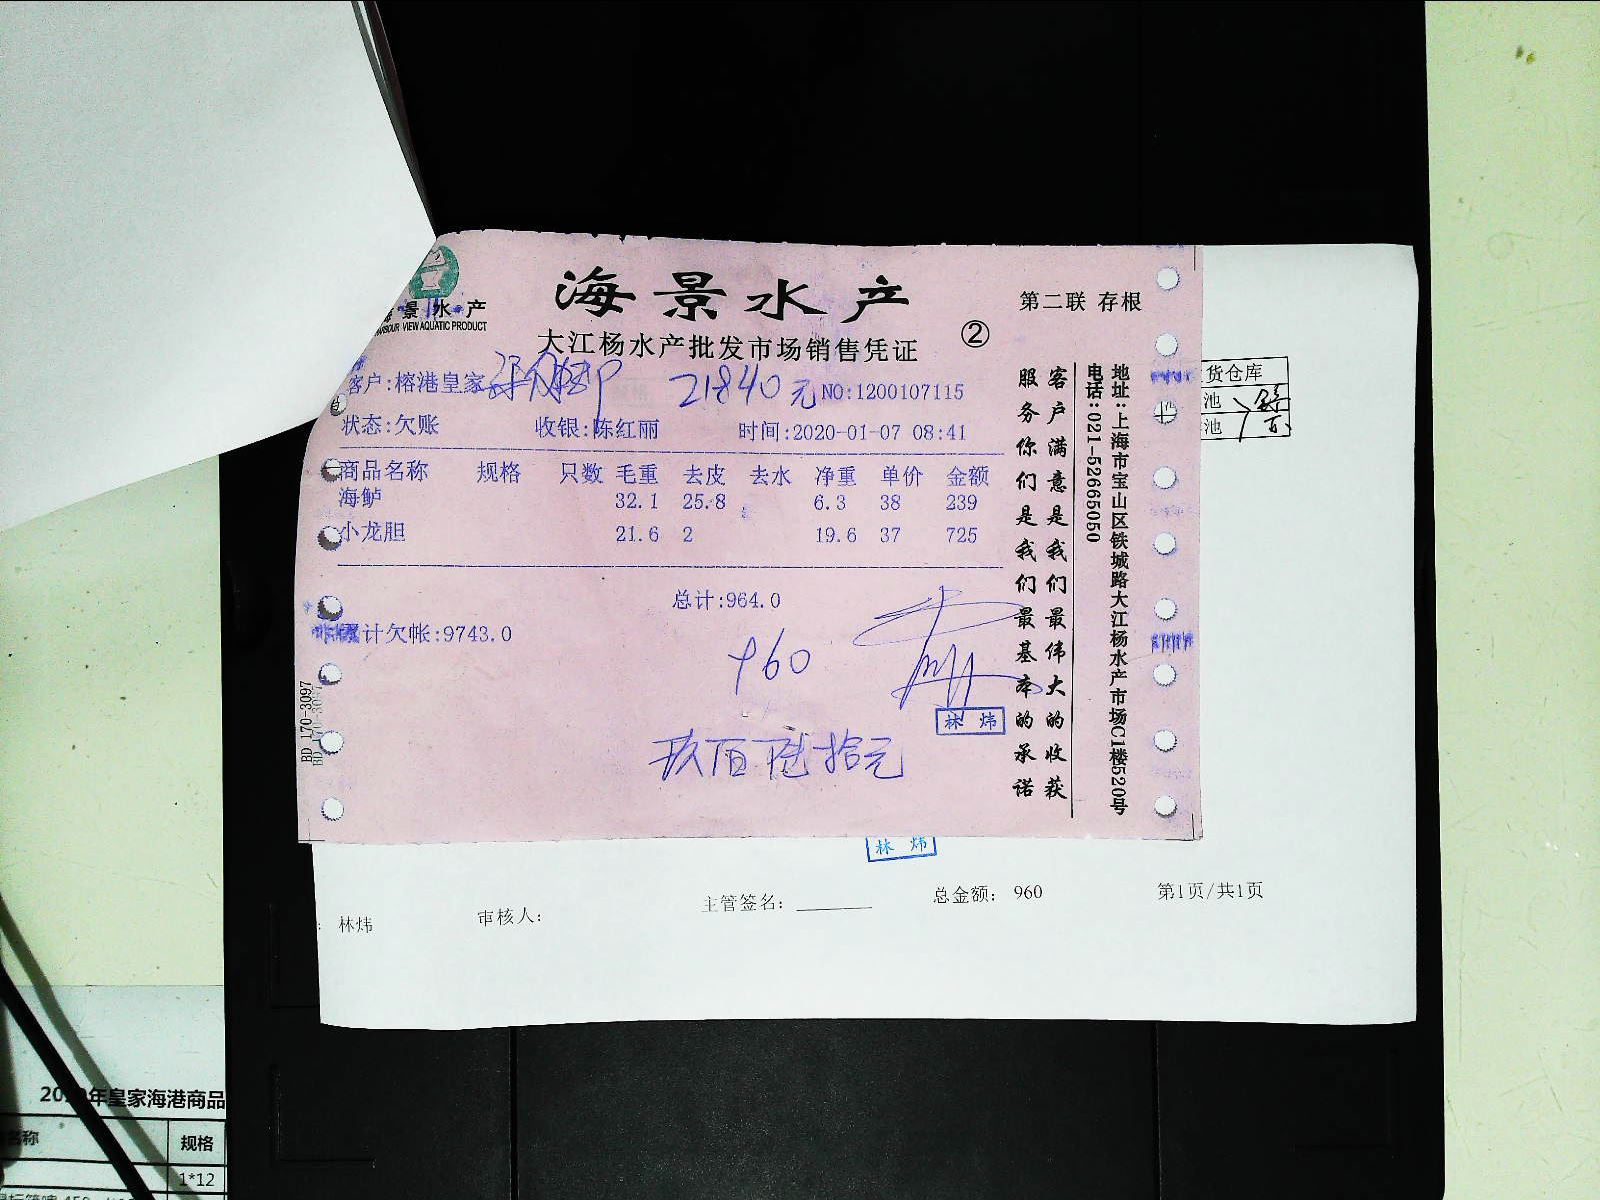 景水产
VIEW AQUATIC PRODUCT
海景水产
大江杨水产批发市场销售凭证
②
第二联 存根
客户:榕港皇家
21840元
NO:1200107115
状态:欠账 收银:陈红丽 时间:2020-01-07 08:41
商品名称 规格 只数 毛重 去皮 去水 净重 单价 金额
海鲈 32.1 25.8 6.3 38 239
小龙胆 21.6 2 19.6 37 725
总计:964.0
累计欠帐:9743.0
960
玖佰陆拾元
林炜
客户满意是我们最伟大的收获
服务你们是我们最基本的承诺
地址:上海市宝山区铁城路大江杨水产市场C1楼520号
电话:021-52665050
BD 170-3097
货仓库
池
池
林炜
: 林炜 审核人: 主管签名: 总金额: 960 第1页/共1页
年皇家海港商品
名称 规格
1*12